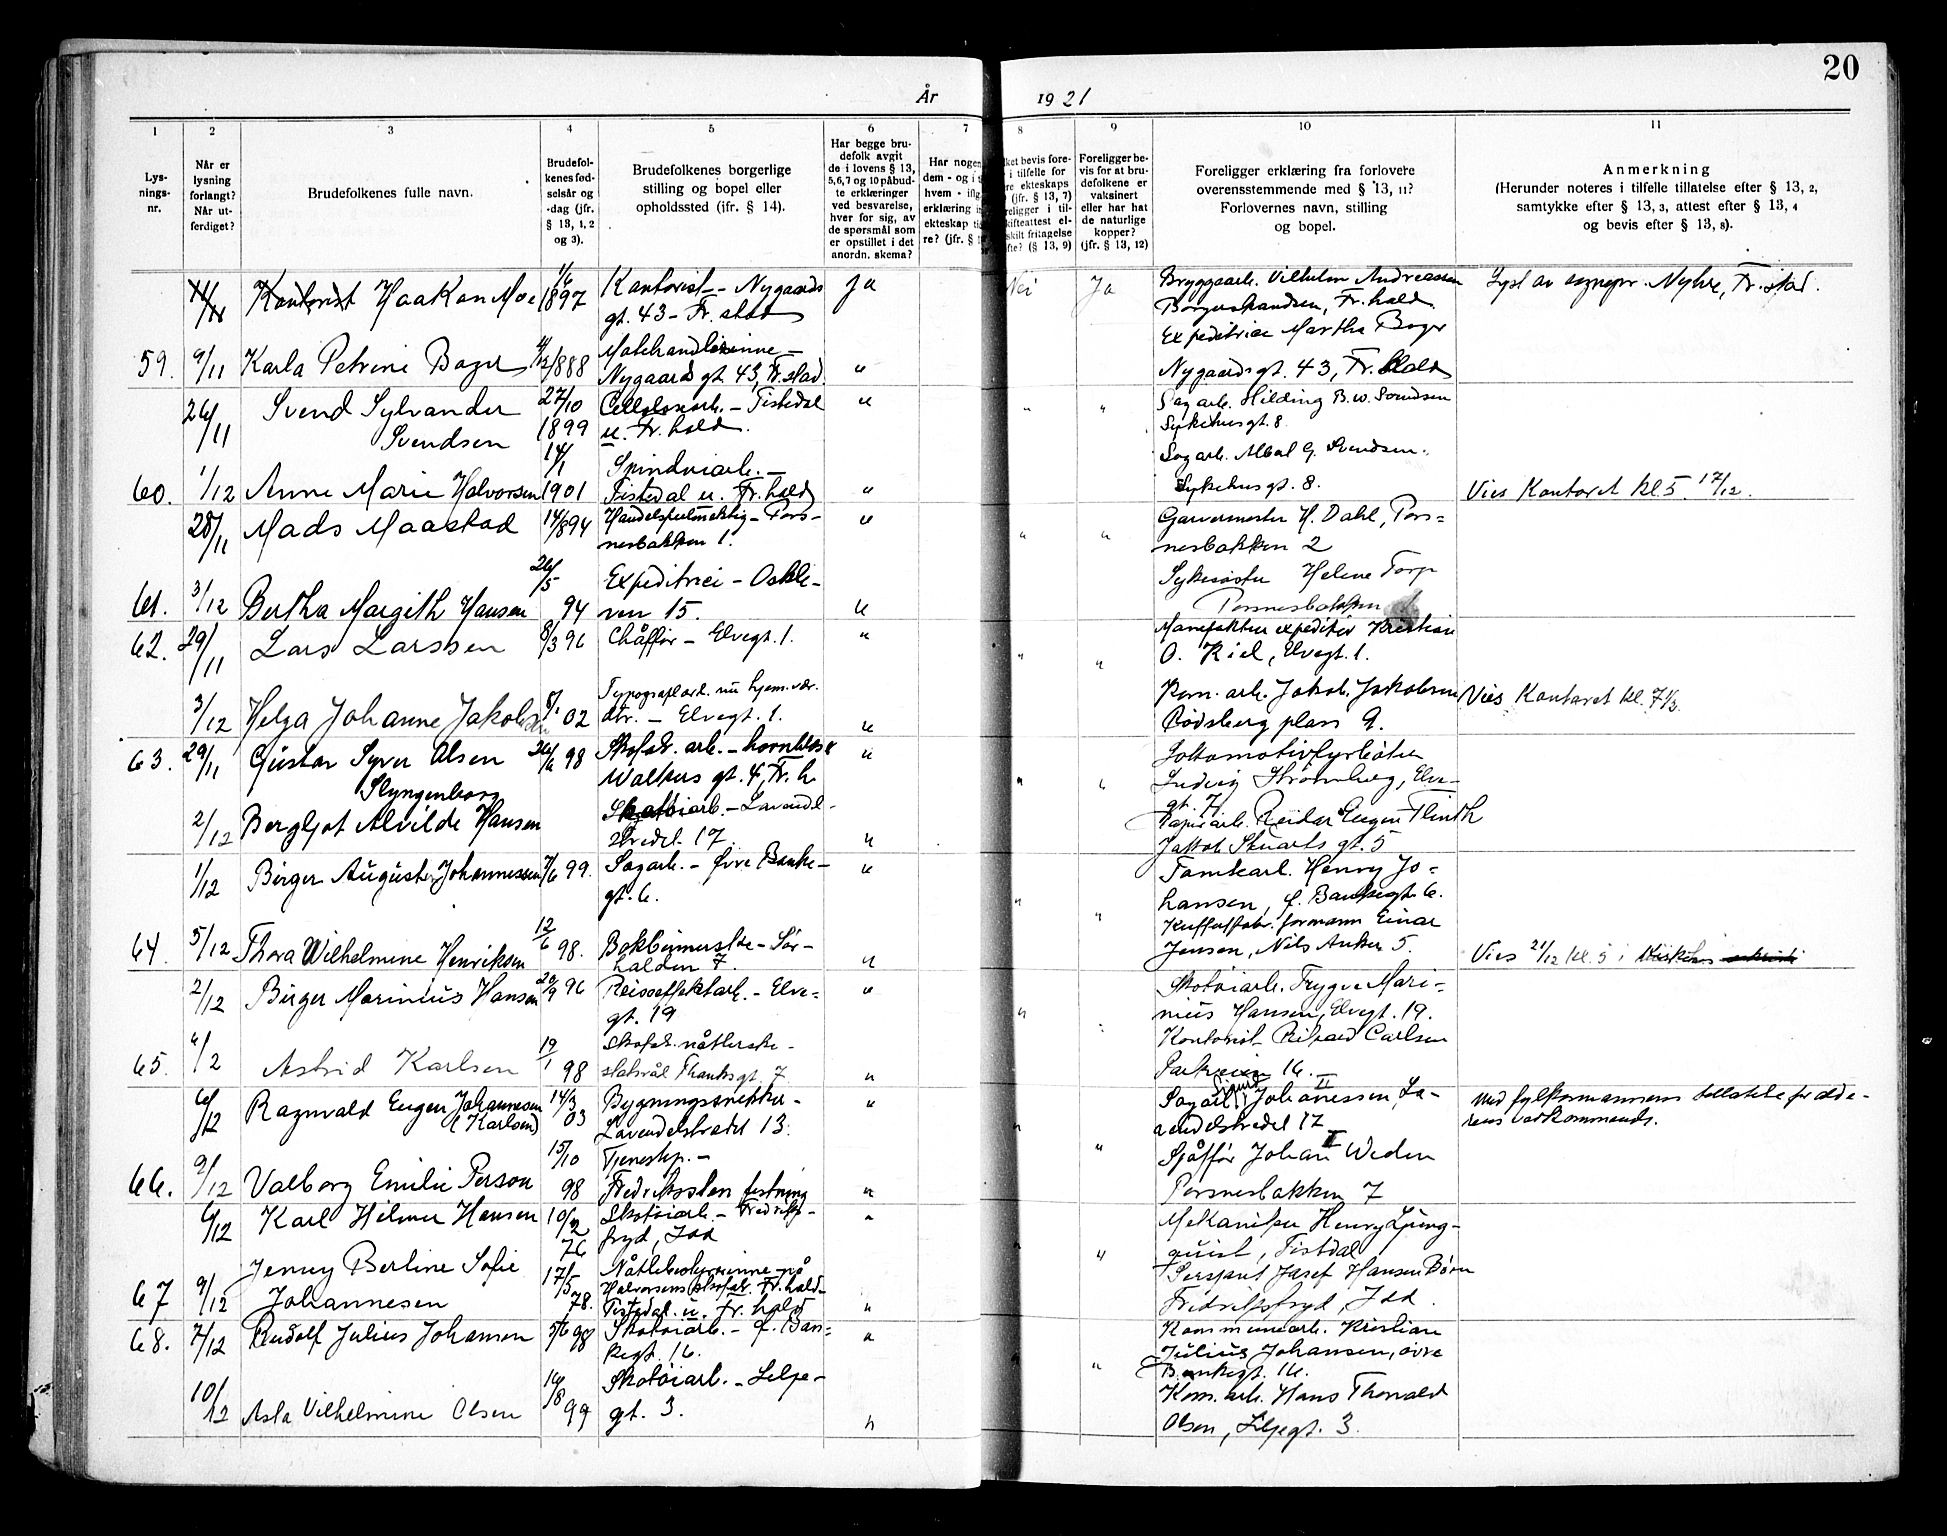 20
År 1921
1 2 3 4 5 6 7 8 9 10 11
Lys-
nings-
nr.
Når er
lysning
forlangt?
Når ut-
ferdiget?
Brudefolkenes fulle navn.
Brudefol-
kenes fød-
selsår og
-dag (jfr.
§ 13, 1, 2
og 3).
Brudefolkenes borgerlige
stilling og bopel eller
opholdssted (ifr. § 14).
Har begge bru-
defolk avgit
de i lovens § 13,
5,6,7 og 10 påbud-
te erklæringer
ved besvarelse,
hver for sig, av
de spørsmål som
er opstillet i det
anordn. skema?
Har nogen
dem - og i
hvem - ifl
erklæring
ekteskap
re? (jfr. §
ket bevis fore-
i tilfelle for
re ekteskaps
(jfr. § 13, 7)
religger i til-
kifteattest el-
skilt fritagelse
fte? (§ 13, 9)
Foreligger be-
vis for at bru-
defolkene er
vaksinert
eller har hat
de naturlige
kopper?
(jfr. § 13, 12)
Foreligger erklæring fra forlovere
overensstemmende med § 13, 11?
Forlovernes navn, stilling
og bopel.
Anmerkning
(Herunder noteres i tilfelle tillatelse efter § 13, 2,
samtykke efter § 13, 3, attest efter § 13, 4
og bevis efter § 13, 8).
Kontorist Haakon Moe 1/6 1897 Kontorist - Nygaards
gt. 43 - Fr. stad Ja Nei Ja
Bryggearb. Vilhelm Andreassen
Fr. hald
Expeditrice Martha Boger
Nygaardsgt. 43, Fr. stad
Lyst av sognepr. Nyhre, Fr. stad.
59. 9/11 Karla Petrine Boger /1888
Nygaards gt. 43, Fr. stad. "
26/11 Svend Sylvander
Svendsen 27/10 1899 Cellulosearb. - Tistedal
u. Fr. hald. " " "
Sagarb. Hilding B.W. Svendsen
Sykehusgt. 8
Sagarb. Albal G. Svendsen.
Sykehusgt. 8.
60. 1/12 Anne Marie Halvorsen 14/1 1901 Spinneriarb. -
Tistedal u. Fr. hald "
Vies Kontoret kl 5. 17/12.
28/11 Mads Maastad 14/894 Handelsfulmektig - Pors-
nesbakken 1. " " "
Garvermester H. Dahl, Pors-
nesbakken 2
Sykesøster Helene Torp
Porsnesbakken 1
61. 3/12 Bertha Margith Hansen 26/5 94 Expeditrice - Oskle-
ven 15. "
62. 29/11 Lars Larssen 8/3 96 Chåffør - Elvegt. 1. " " "
Manufaktur expeditør Kristian
O. Kiel, Elvegt. 1.
3/12 Helga Johanne Jakobsen 02 Typografarb. nu hjem. vær.
- Elvegt. 1. "
Kom. arb. Jakob Jakobsen
Rødsberg plass 9.
Vies Kontoret kl. 7 1/3
63. 29/11 Gustav Syver Olsen
Slyngenborg 26/ 98 Skofab. arb. -
Walkers gt. 4, Fr. h " " "
Lokomotivfyrbøter
Ludvig Strømberg, Elve-
gt. 7
2/12 Bergljot Alvilde Hansen
Skotøiarb. - Lavendel-
stredet 17. "
Papirarb. Reidar Eugen Flinth
Jakob Stuarts gt. 5
1/12 Birger August Johannessen 7/6 99. Sagarb. - øvre Banke-
gt. 6. " " "
Tomtearb. Henry Jo-
hansen, ø. Bankegt. 6.
formann Einar
Jensen, Nils Anker 5.
64. 5/12 Thora Wilhelmine Henriksen 12/6 98. Bokbinnerske - Sør-
halden 7. "
Vies 21/12 kl. 5 i Kirken
2/12 Birger Marinius Hansen 29/9 96 Reiseeffektarb. - Elve-
gt. 19 " " "
Skotøiarb. Trygve Mari-
nius Hansen, Elvegt. 19.
Kontorist Rikard Carlsen
Parkveien 16.
65. 6/12 Astrid Karlsen 19/1 98 Skofab. nåtlerske -
statsråd Thanksgt. 7 "
6/12 Ragnvald Eugen Johannesen
(Karlsen) 14/3 03 Bygningssnekker -
Lavendelstredet 13. " " "
Sagarb. Sigurd Johanessen, La-
vendelstredet 17 II
Sjåffør Johan Weden
Porsnesbakken 7
Med fylkesmannens tillatelse for alde-
rens vedkommende.
66. 9/12 Valborg Emilie Person 15/10 98 Tjenestep. -
Fredriksten festning "
6/12 Karl Hilmer Hansen 10/2 76 Skotøiarb. - Fredriks-
fryd, Idd " " "
Mekaniker Henry Ljung-
quist, Tistdal
Sersjant Josef Hansen Børn
Fredriksfryd, Idd.
67 9/12 Jenny Berline Sofie
Johannesen 17/5 78. Nåtlebestyrerinne på
Halvorsens skofab. Fr. hald -
Tistedal u. Fr. hald "
68. 7/12 Rudolf Julius Johansen 5/6 98 Skotøiarb. - ø. Ban-
kegt. 16. " "
Kommunearb. Kristian
Julius Johansen, øvre
Bankegt. 16.
10/12 Asta Vilhelmine Olsen 16/8 99 Skotøiarb. - Lilje-
gt. 3. "
Kom. arb. Hans Thorvald
Olsen, Liljegt. 3.